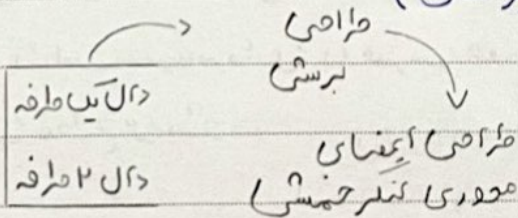 طراحی
برشی
دال یک طرفه
دال ۲ طرفه
طراحی اعضای
محوری لنگر خمشی